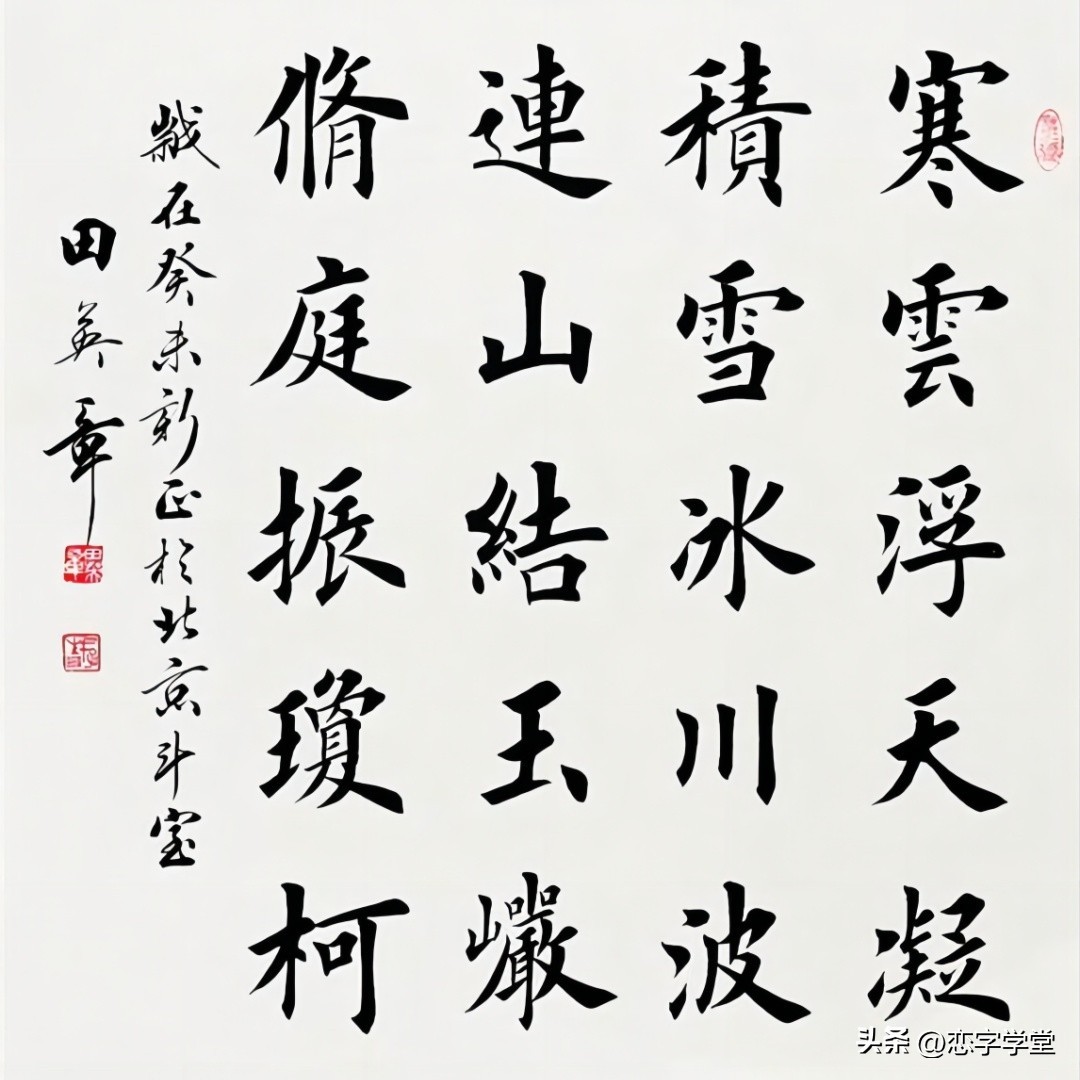 寒雲浮天凝
積雪冰川波
連山結玉巖
脩庭振瓊柯
歲在癸未新正於北京斗室
田英章
头条 @恋字学堂